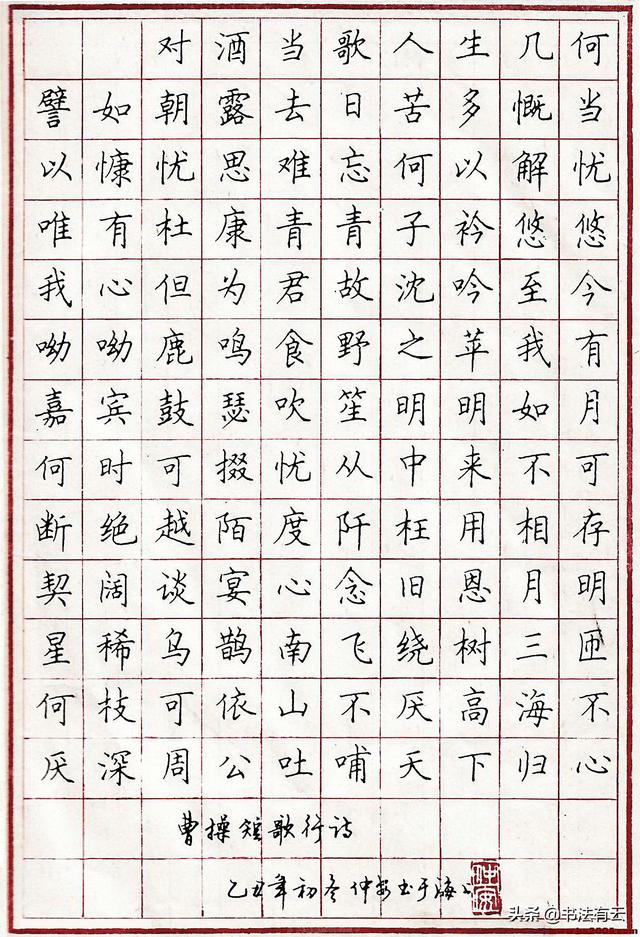 对酒当歌人生几何
譬如朝露去日苦多慨当
以慷忧思难忘何以解忧
唯有杜康青青子衿悠悠
我心但为君故沈吟至今
呦呦鹿鸣食野之苹我有
嘉宾鼓瑟吹笙明明如月
何时可掇忧从中来不可
断绝越陌度阡枉用相存
契阔谈宴心念旧恩月明
星稀乌鹊南飞绕树三匝
何枝可依山不厌高海不
厌深周公吐哺天下归心
曹操短歌行诗
乙丑年初冬仲书于海上
头条 @书法有云